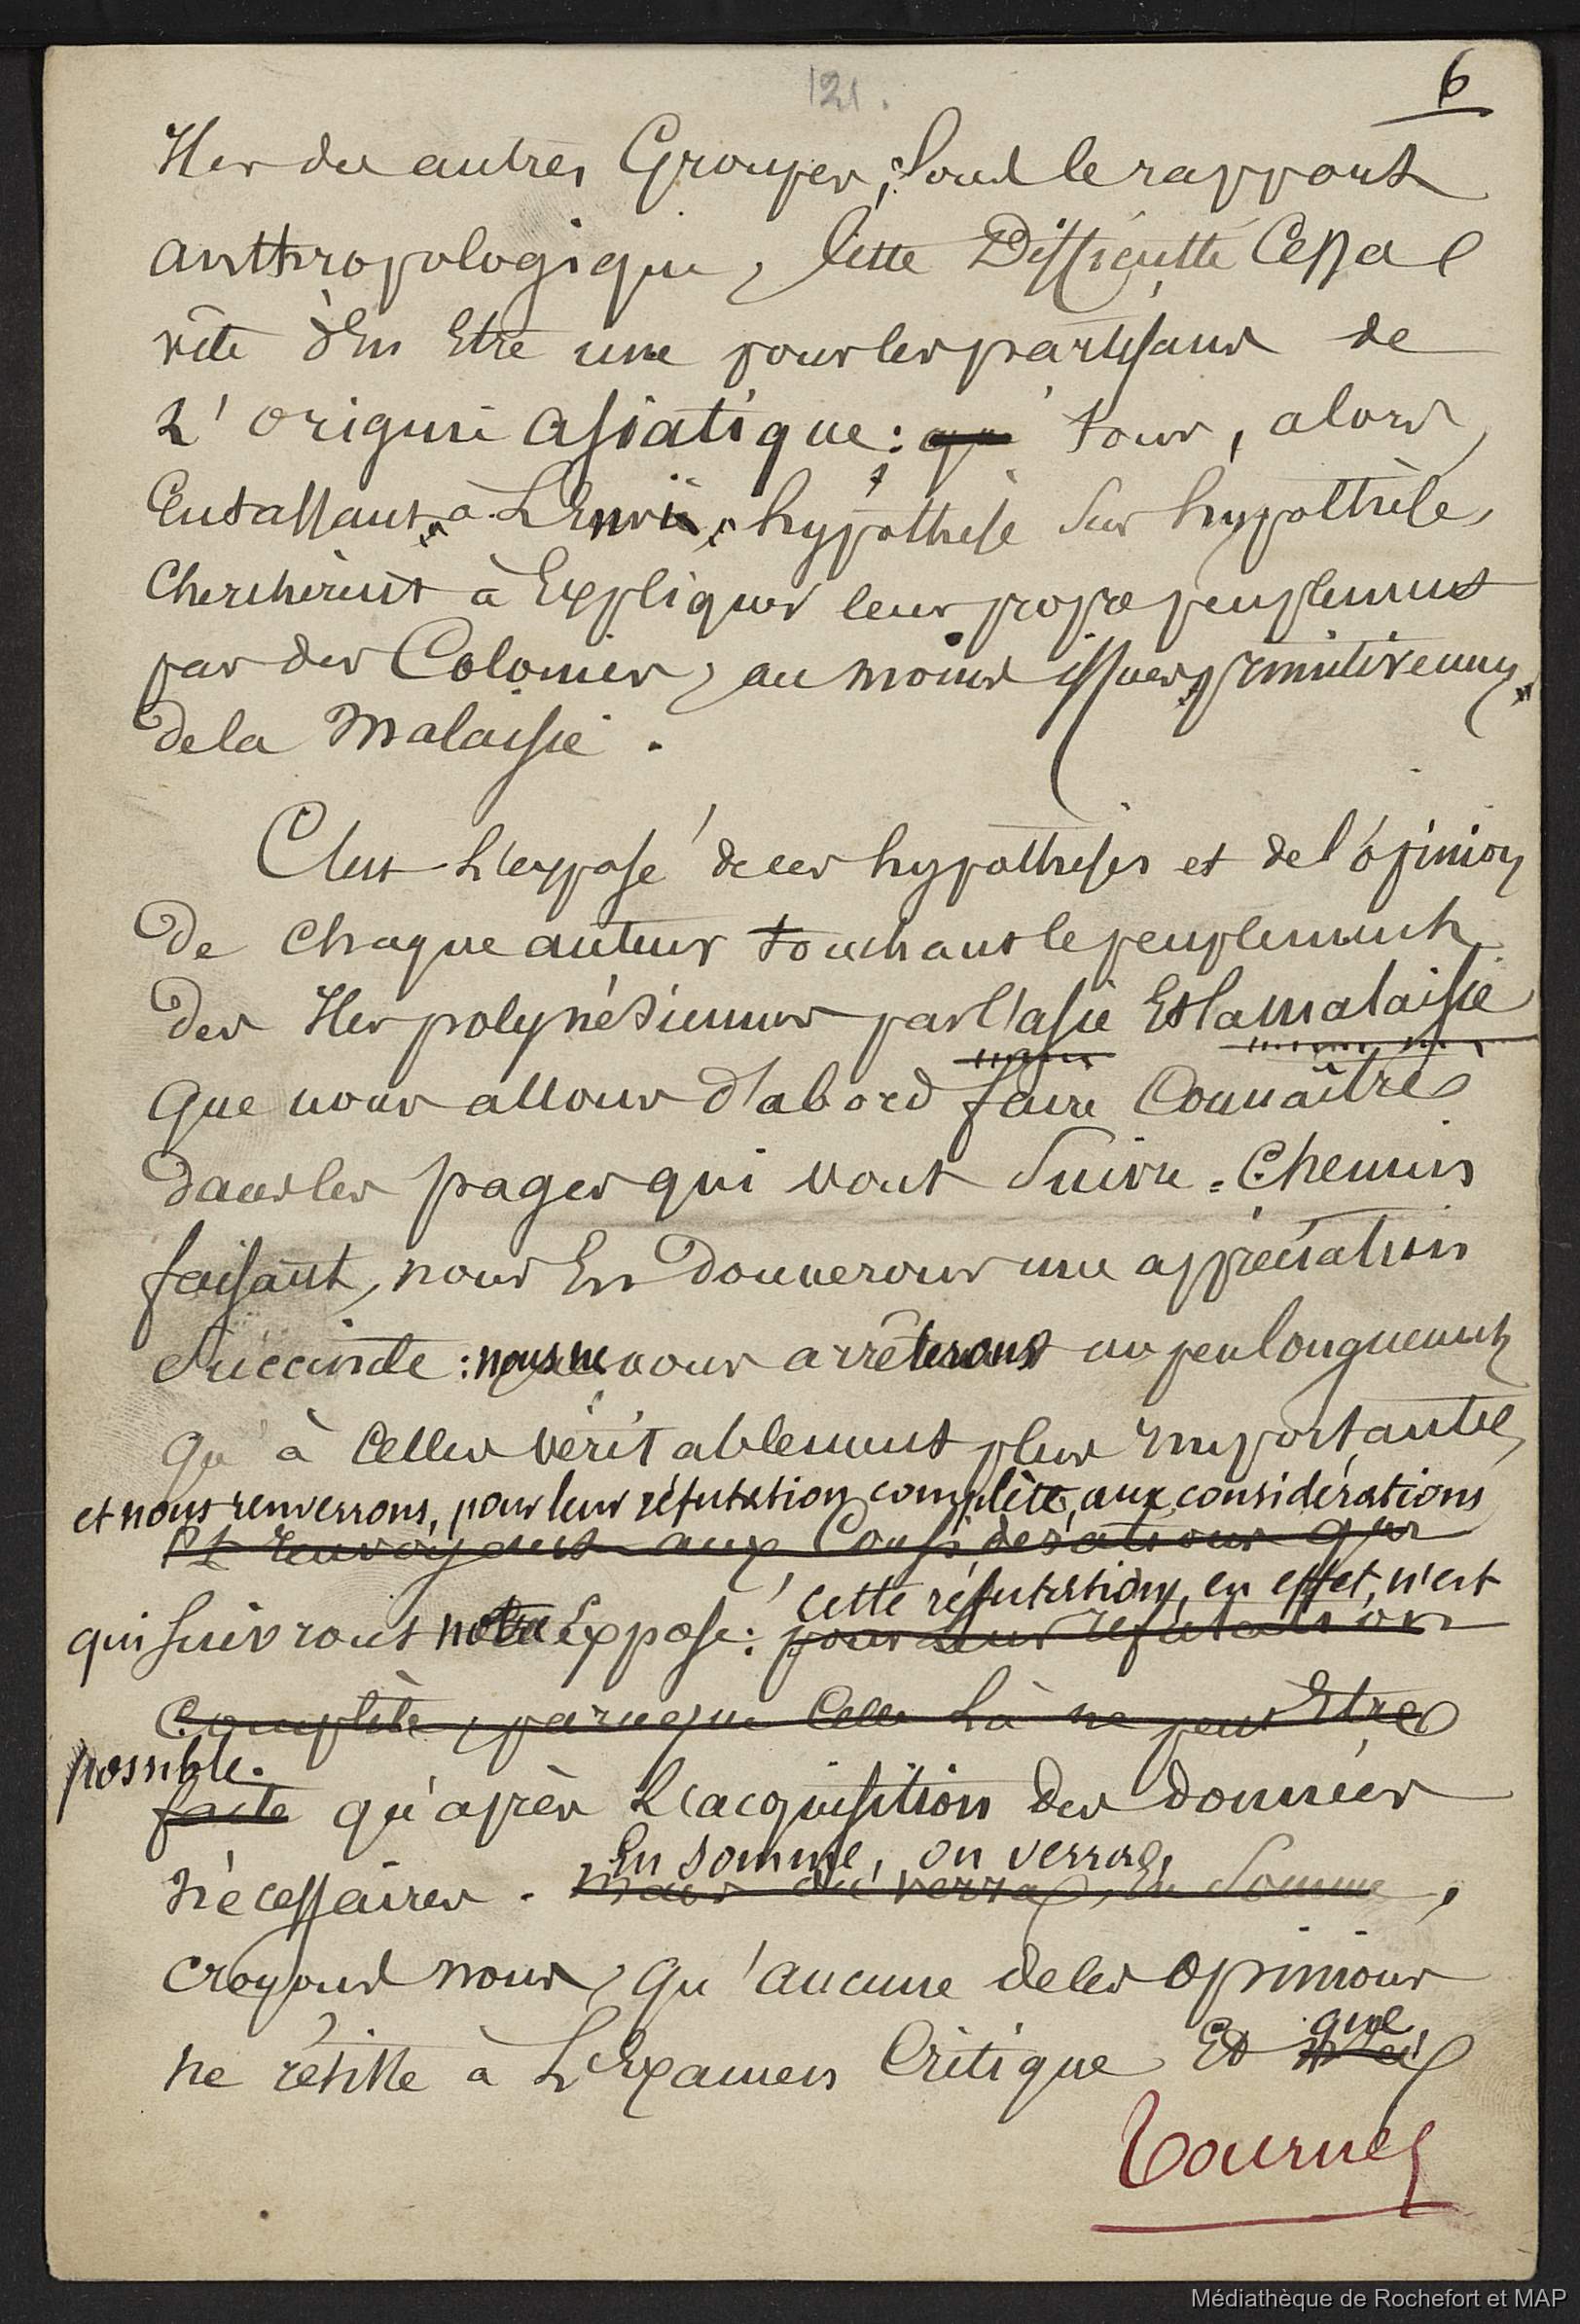 121.
6
Iles des autres Groupes, sous le rapport
anthropologique, cette Difficulté Cessa
vite d'En Etre une pour les partisans de
L'origine asiatique: qu tous, alors,
Entassant, à L'Envie, hypothèse sur hypothèse,
Cherchèrent à Expliquer leur propre peuplement
par des Colonies, au moins issues, primitivement,
de la Malaisie.
C'est L'exposé de ces hypothèses et de l'opinion
De chaque auteur touchant le peuplement
Des Iles polynésiennes par l'asie Et la malaisie
que nous allons d'abord faire Connaître
dans les pages qui vont Suivre. Chemin
faisant, nous En Donnerons une appréciation
Succincte: nous ne nous arrêterons un peu longuement
qu'à Celles véritablement plus Importantes,
et nous renverrons, pour leur réfutation complète, aux considérations
Et renvoyant aux Considérations qui
qui suivront notre Exposé: cette réfutation, en effet, n'est
pour leur réfutation
Complète, parce que Celle Là ne peut Etre
possible.
faite qu'après L'acquisition des données
nécessaires. En somme, on verra,
Mais on verra, En Somme,
croyons nous, qu'aucune de ces opinions
ne résiste à L'Examen Critique Et que
Tournez
Médiathèque de Rochefort et MAP